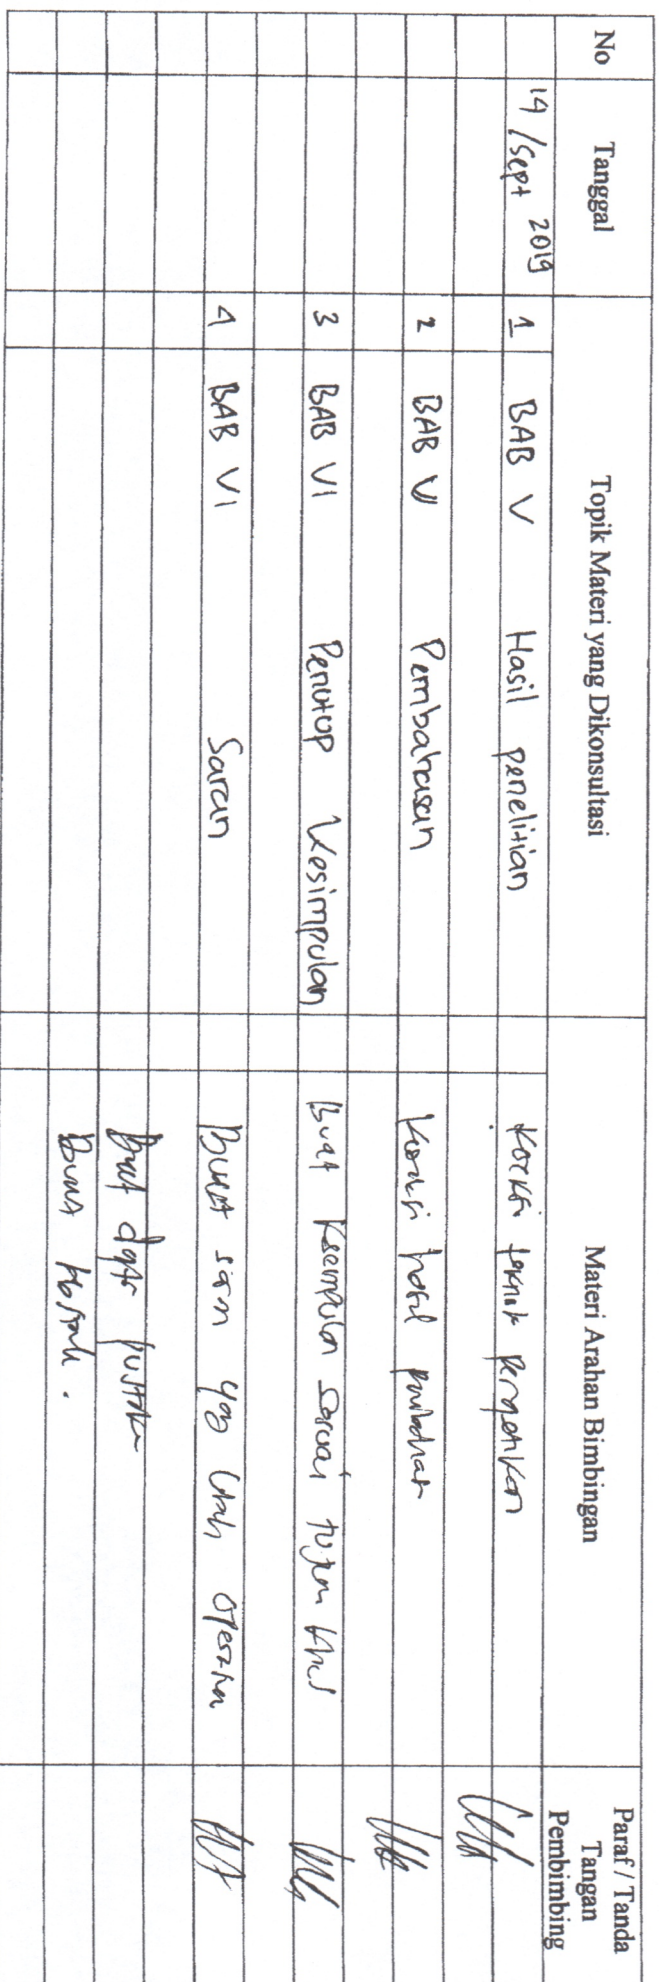 No Tanggal Topik Materi yang Dikonsultasi Materi Arahan Bimbingan Paraf / Tanda Tangan Pembimbing
14 /Sept 2019 1 BAB V Hasil penelitian Koreksi teknik pengetikan
2 BAB V Pembahasan Koreksi hasil
3 BAB VI Penutup Kesimpulan Buat Kesimpulan sesuai tujuan khus
4 BAB VI Saran Buat saran yag lebih operasion
Buat daftar pustaka
Buat Abstrak.